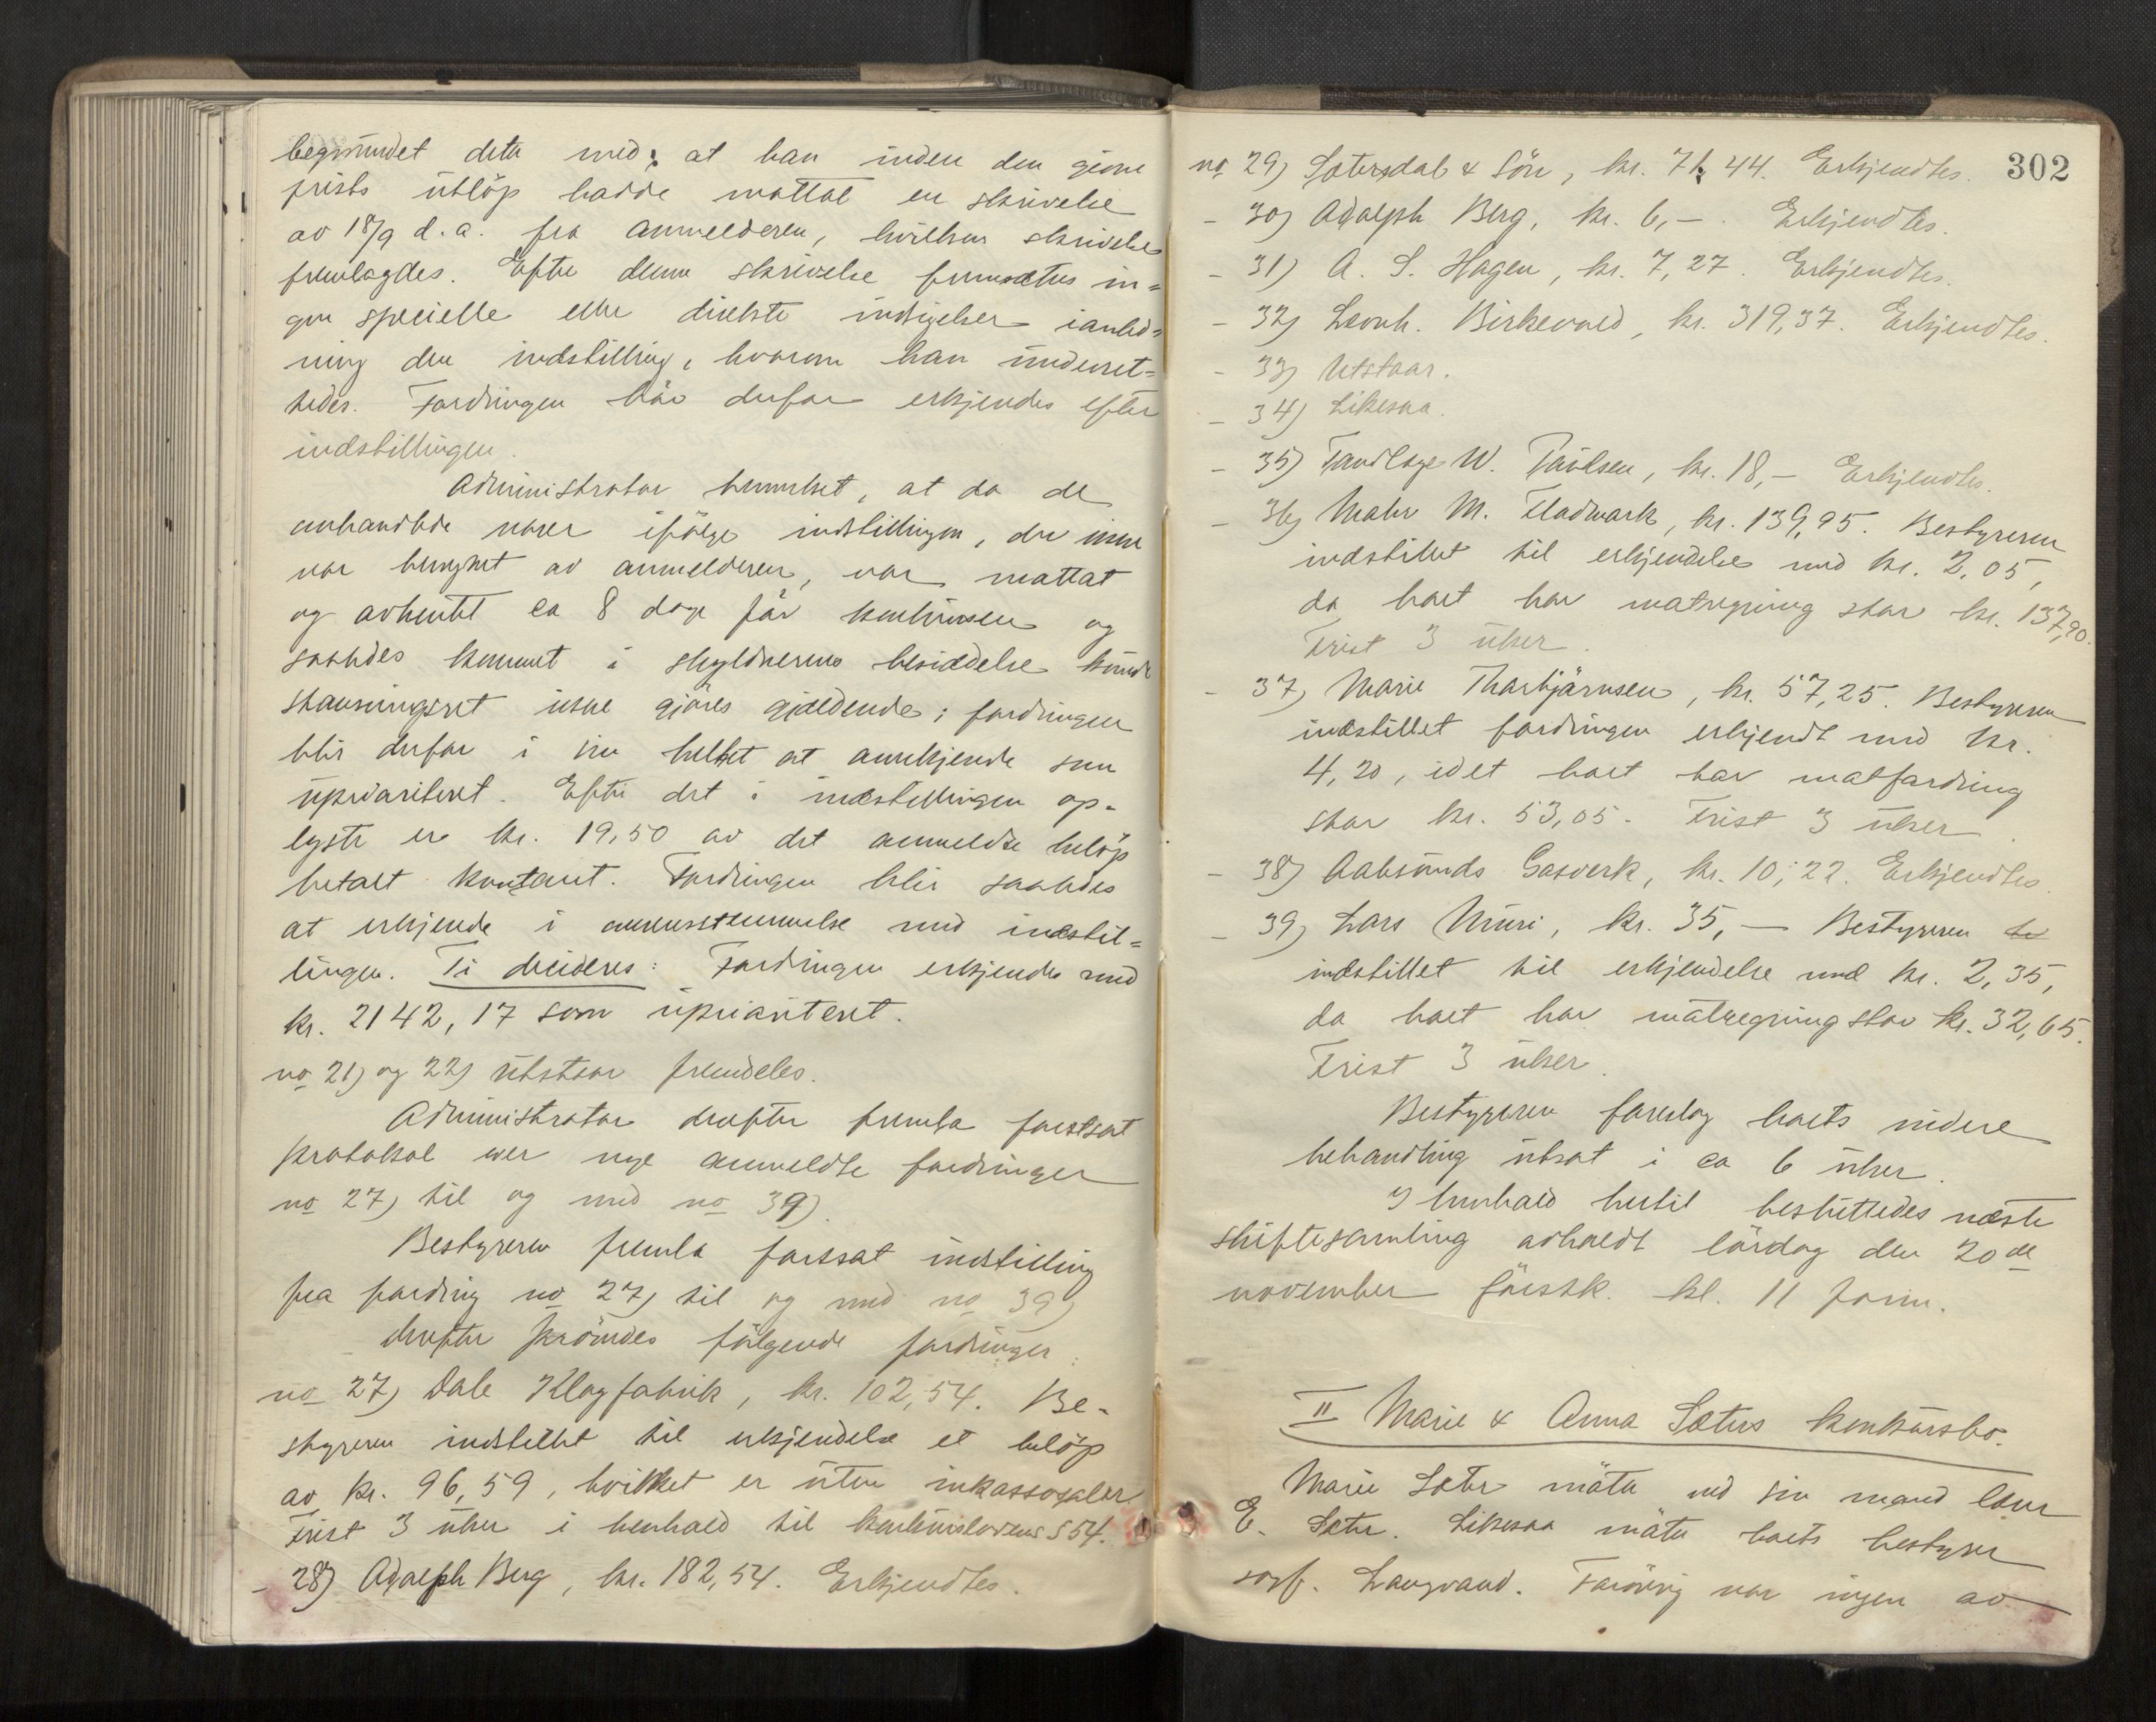 begrundet dette med, at han inden den givne
frists utløp hadde mottat en skrivelse
av 18/9 d.a. fra anmelderen, hvilken skrivelse
fremlagdes. Efter denne skrivelse fremsættes in=
gen specielle eller direkte indsigelser ianled=
ning den indstilling, hvorom han underret=
tedes. Fordringen bör derfor erkjendes efter
indstillingen.
Administrator bemerket, at da de
omhandlede varer ifölge indstillingen, der ikke
var benegtet av anmelderen, var mottat
og avhentet ca 8 dage för konkursen og
saaledes kommet i skyldnerens besiddelse kunde
stansningsret ikke gjöres gjældende; fordringen
blir derfor i sin helhet at anerkjende som
uprioritert. Efter det i indstillingen op-
lyste er kr. 19,50 av det anmeldte belöp
betalt kontant. Fordringen blir saaledes
at erkjende i overensstemmelse med indstil=
lingen. Ti decideres: Fordringen erkjendes med
kr. 2142,17 som uprioritert.
no 21) og 22) utstaar fremdeles.
Administrator derefter fremla fortsat
protokol over nye anmeldte fordringer
no 27) til og med no 39).
Bestyreren fremla fortsat indstilling
fra fordring no 27) til og med no 39)
derefter prövedes fölgende fordringer:
no 27) Dale Klagfabrik, kr. 102,54. Be-
styreren indstillet til erkjendelse et belöp
av kr. 96,59, hvilket er uten inkassosalær.
Frist 3 uker i henhold til konkurslovens § 54.
- 28) Adolph Berg, kr. 182,54. Erkjendtes.
302
no 29) Sætersdal & Sön, kr. 71,44. Erkjendtes.
- 30) Adolph Berg, kr. 6,-. Erkjendtes.
- 31) A. S. Hagen, kr. 7,27. Erkjendtes.
- 32) Leonh. Birkevold, kr. 319,37. Erkjendtes.
- 33) Utstaar.
- 34) Likesaa.
- 35) Tandlæge W. Paulsen, kr. 18,- Erkjendtes.
- 36) Maler M. Fladmark, kr. 139,95. Bestyreren
indstillet til erkjendelse med kr. 2,05,
da boet har motregning stor kr. 137,90.
Frist 3 uker.
- 37) Marie Thorbjörnsen, kr. 57,25. Bestyreren
indstillet fordringen erkjendt med kr.
4,20, idet boet har motfordring
stor kr. 53,05. Frist 3 uker.
- 38) Aalesunds Gasverk, kr. 10,22. Erkjendtes.
- 39) Lars Muri, kr. 35,- Bestyreren
indstillet til erkjendelse med kr. 2,35,
da boet har motregning stor kr. 32,65.
Frist 3 uker.
Bestyreren foreslog boets videre
behandling utsat i ca 6 uker.
I henhold hertil besluttedes næste
skiftesamling avholdt lördag den 20de
november förstk. kl. 11 form.
II Marie & Anna Sæters konkursbo.
Marie Sæter mötte ved sin mand
E. Sæter. Likesaa mötte boets bestyrer
sorf. Langvand. Forövrig var ingen av